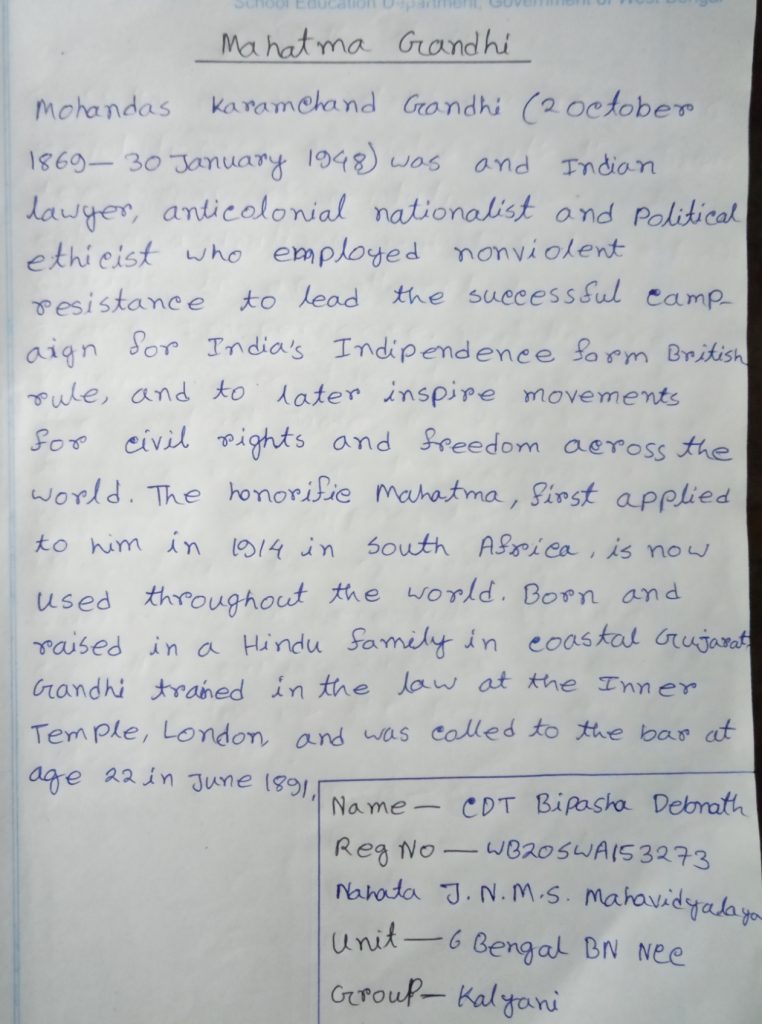 School Education Department, Government of West Bengal
Mahatma Gandhi
Mohandas Karamchand Gandhi (2 october
1869— 30 January 1948) was and Indian
lawyer, anticolonial nationalist and Political
ethicist who employed nonviolent
resistance to lead the successful camp-
aign for India's Indipendence form British
rule, and to later inspire movements
for civil rights and freedom across the
world. The honorific Mahatma, first applied
to him in 1914 in South Africa, is now
used throughout the world. Born and
raised in a Hindu family in coastal Gujarat
Gandhi trained in the law at the Inner
Temple, London and was called to the bar at
age 22 in June 1891,
Name — CDT Bipasha Debnath
Reg No — WB20SWA153273
Nahata J.N.M.S. Mahavidyalaya
Unit — 6 Bengal BN Ncc
Group — Kalyani